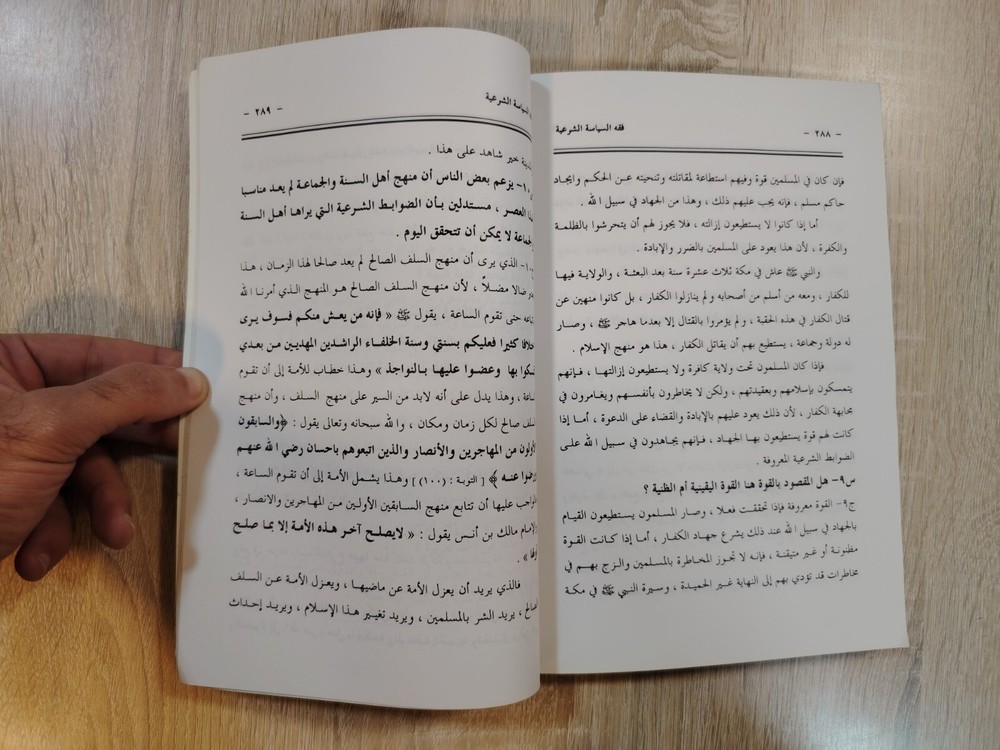 - ٢٨٨ -
فقه السياسة الشرعية
فإن كان في المسلمين قوة وفيهم استطاعة لمقاتلته وتنحيته عن الحكم وايجاد
حاكم مسلم ، فإنه يجب عليهم ذلك ، وهذا من الجهاد في سبيل الله .
أما إذا كانوا لا يستطيعون إزالته ، فلا يجوز لهم أن يتحرشوا بالظلمة
والكفرة ، لأن هذا يعود على المسلمين بالضرر والإبادة .
والنبي ﷺ عاش في مكة ثلاث عشرة سنة بعد البعثة ، والولاية فيها
للكفار ، ومعه من أسلم من أصحابه ولم ينازلوا الكفار ، بل كانوا منهين عن
قتال الكفار في هذه الحقبة ، ولم يؤمروا بالقتال إلا بعدما هاجر ﷺ ، وصار
له دولة وجماعة ، يستطيع بهم أن يقاتل الكفار ، هذا هو منهج الإسلام .
فإذا كان المسلمون تحت ولاية كافرة ولا يستطيعون إزالتها ، فإنهم
يتمسكون بإسلامهم وبعقيدتهم ، ولكن لا يخاطرون بأنفسهم ويغامرون في
مجابهة الكفار ، لأن ذلك يعود عليهم بالإبادة والقضاء على الدعوة ، أما إذا
كانت لهم قوة يستطيعون بها الجهاد ، فإنهم يجاهدون في سبيل الله على
الضوابط الشرعية المعروفة .
س٩- هل المقصود بالقوة هنا القوة اليقينية أم الظنية ؟
ج٩- القوة معروفة فإذا تحققت فعلا ، وصار المسلمون يستطيعون القيام
بالجهاد في سبيل الله عند ذلك يشرع جهاد الكفار ، أما إذا كانت القوة
مظنونة أو غير متيقنة ، فإنه لا تجوز المخاطرة بالمسلمين والزج بهم في
مخاطرات قد تؤدي بهم إلى النهاية غير الحميدة ، وسيرة النبي ﷺ في مكة
السياسة الشرعية
- ٢٨٩ -
خير شاهد على هذا .
١٠- يزعم بعض الناس أن منهج أهل السنة والجماعة لم يعد مناسبا
العصر ، مستدلين بأن الضوابط الشرعية التي يراها أهل السنة
لا يمكن أن تتحقق اليوم .
١٠- الذي يرى أن منهج السلف الصالح لم يعد صالحا لهذا الزمان ، هذا
ضالا مضلاً ، لأن منهج السلف الصالح هو المنهج الذي أمرنا الله
حتى تقوم الساعة ، يقول ﷺ « فإنه من يعش منكم فسوف يرى
كثيرا فعليكم بسنتي وسنة الخلفاء الراشدين المهديين من بعدي
بها وعضوا عليها بالنواجذ » وهذا خطاب للأمة إلى أن تقوم
، وهذا يدل على أنه لابد من السير على منهج السلف ، وأن منهج
صالح لكل زمان ومكان ، والله سبحانه وتعالى يقول : ﴿والسابقون
من المهاجرين والأنصار والذين اتبعوهم باحسان رضي الله عنهم
عنه ﴾ [ التوبة : (١٠٠) ] وهذا يشمل الأمة إلى أن تقوم الساعة ،
عليها أن تتابع منهج السابقين الأولين من المهاجرين والانصار ،
مالك بن أنس يقول : « لايصلح آخر هذه الأمة إلا بما صلح
» .
فالذي يريد أن يعزل الأمة عن ماضيها ، ويعزل الأمة عن السلف
، يريد الشر بالمسلمين ، ويريد تغيير هذا الإسلام ، ويريد إحداث